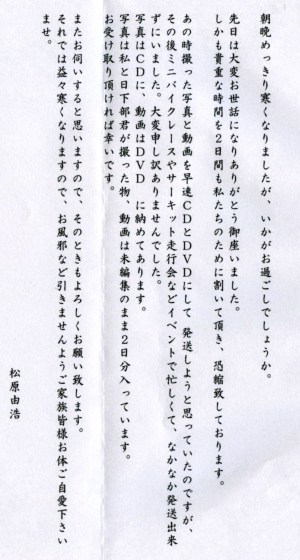 朝晩めっきり寒くなりましたが、いかがお過ごしでしょうか。
先日は大変お世話になりありがとう御座いました。
しかも貴重な時間を2日間も私たちのために割いて頂き、恐縮致しております。
あの時撮った写真と動画を早速CDとDVDにして 発送しようと思っていたのですが、
その後ミニバイクレースやサーキット走行会などイベントで忙しくて、なかなか発送出来
ずにいました。大変申し訳ありませんでした。
写真はCDに、動画はDVD に納めてあります。
写真は私と日下部君が撮った物、動画は未編集のまま2日分入っています。
お受け取り頂ければ幸いです。
またお伺いすると思いますので、そのときもよろしくお願い致します。
それでは益々寒くなりますので、お風邪など引きませんようご家族皆様お体ご自愛下さい
ませ。
松原由浩